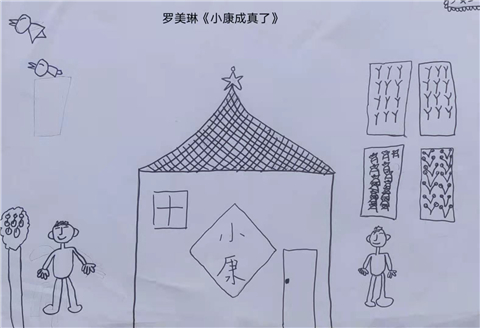 罗美琳《小康成真了》
小
康